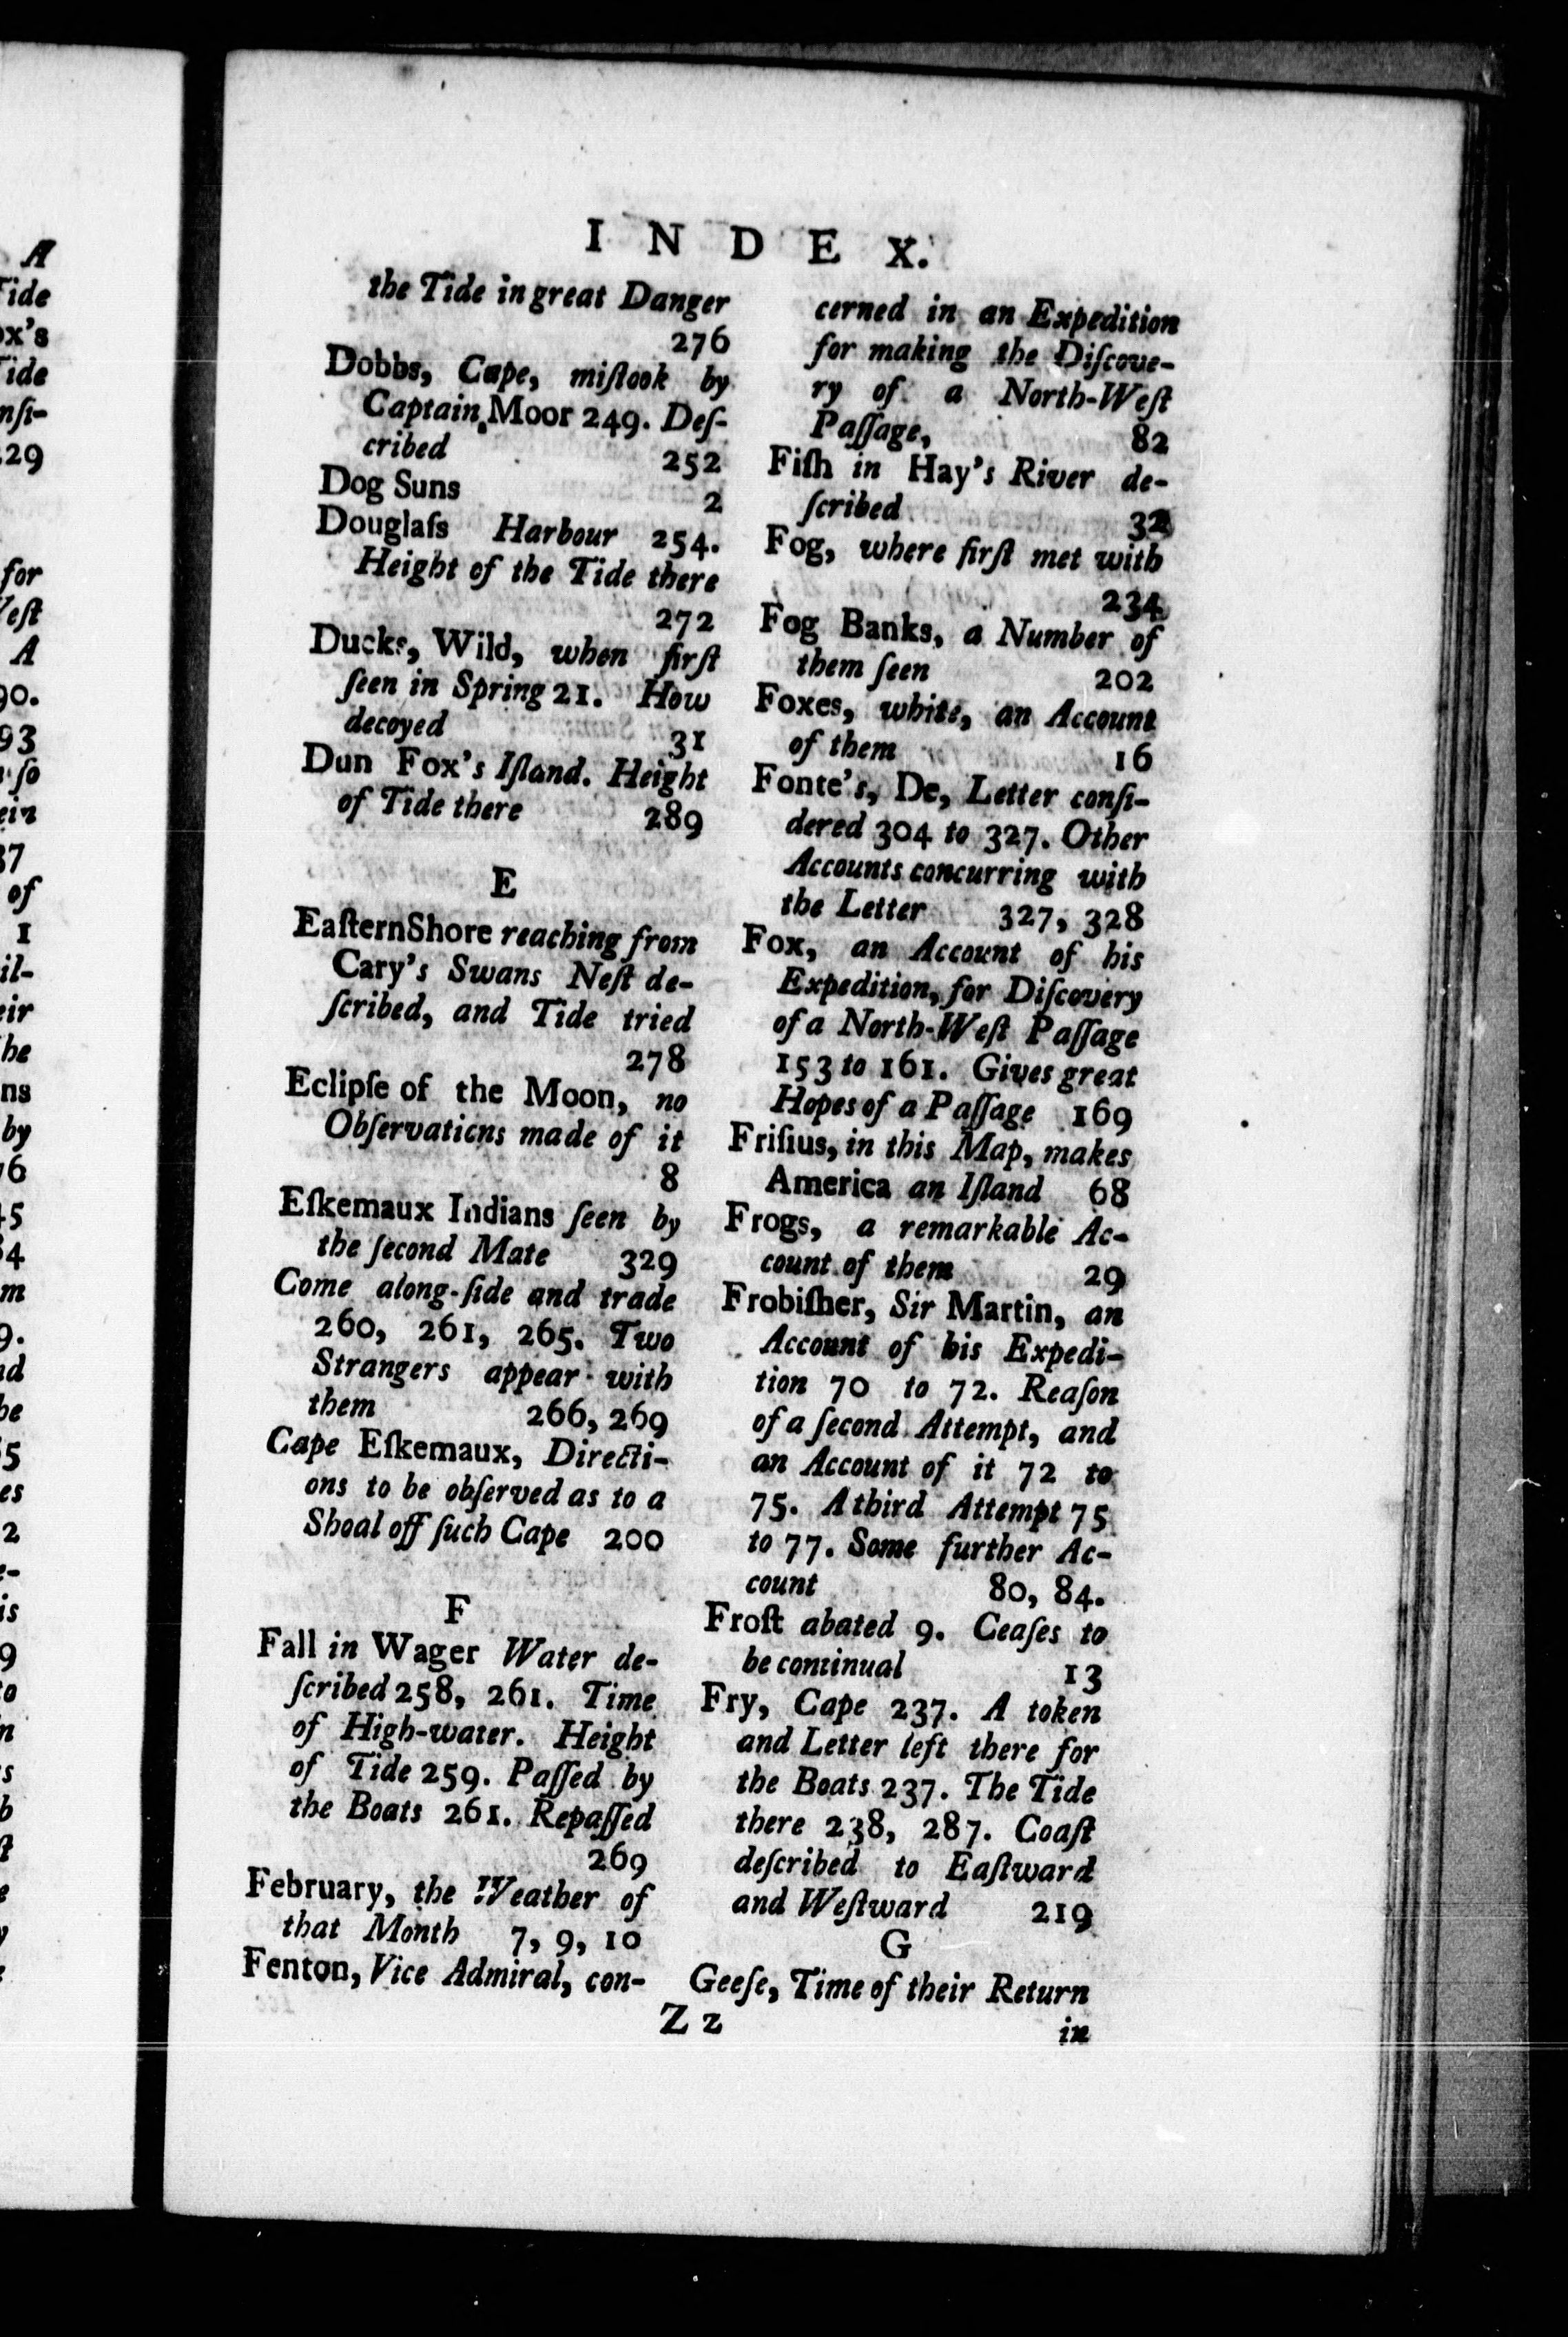 INDEX.
the Tide in great Danger
276
Dobbs, Cape, miſtook by
Captain Moor 249. Deſ-
cribed 252
Dog Suns 2
Douglaſs Harbour 254.
Height of the Tide there
272
Ducks, Wild, when firſt
ſeen in Spring 21. How
decoyed 31
Dun Fox's Iſland. Height
of Tide there 289
E
Eaſtern Shore reaching from
Cary's Swans Neſt de-
ſcribed, and Tide tried
278
Eclipſe of the Moon, no
Obſervations made of it
8
Eſkemaux Indians ſeen by
the ſecond Mate 329
Come along-ſide and trade
260, 261, 265. Two
Strangers appear with
them 266, 269
Cape Eſkemaux, Directi-
ons to be obſerved as to a
Shoal off ſuch Cape 200
F
Fall in Wager Water de-
ſcribed 258, 261. Time
of High-water. Height
of Tide 259. Paſſed by
the Boats 261. Repaſſed
269
February, the Weather of
that Month 7, 9, 10
Fenton, Vice Admiral, con-
cerned in an Expedition
for making the Diſcove-
ry of a North-Weſt
Paſſage, 82
Fiſh in Hay's River de-
ſcribed 32
Fog, where firſt met with
234
Fog Banks, a Number of
them ſeen 202
Foxes, white, an Account
of them 16
Fonte's, De, Letter conſi-
dered 304 to 327. Other
Accounts concurring with
the Letter 327, 328
Fox, an Account of his
Expedition, for Diſcovery
of a North-Weſt Paſſage
153 to 161. Gives great
Hopes of a Paſſage 169
Friſius, in this Map, makes
America an Iſland 68
Frogs, a remarkable Ac-
count of them 29
Frobiſher, Sir Martin, an
Account of his Expedi-
tion 70 to 72. Reaſon
of a ſecond Attempt, and
an Account of it 72 to
75. A third Attempt 75
to 77. Some further Ac-
count 80, 84.
Froſt abated 9. Ceaſes to
be continual 13
Fry, Cape 237. A token
and Letter left there for
the Boats 237. The Tide
there 238, 287. Coaſt
deſcribed to Eaſtward
and Weſtward 219
G
Geeſe, Time of their Return
Z z in